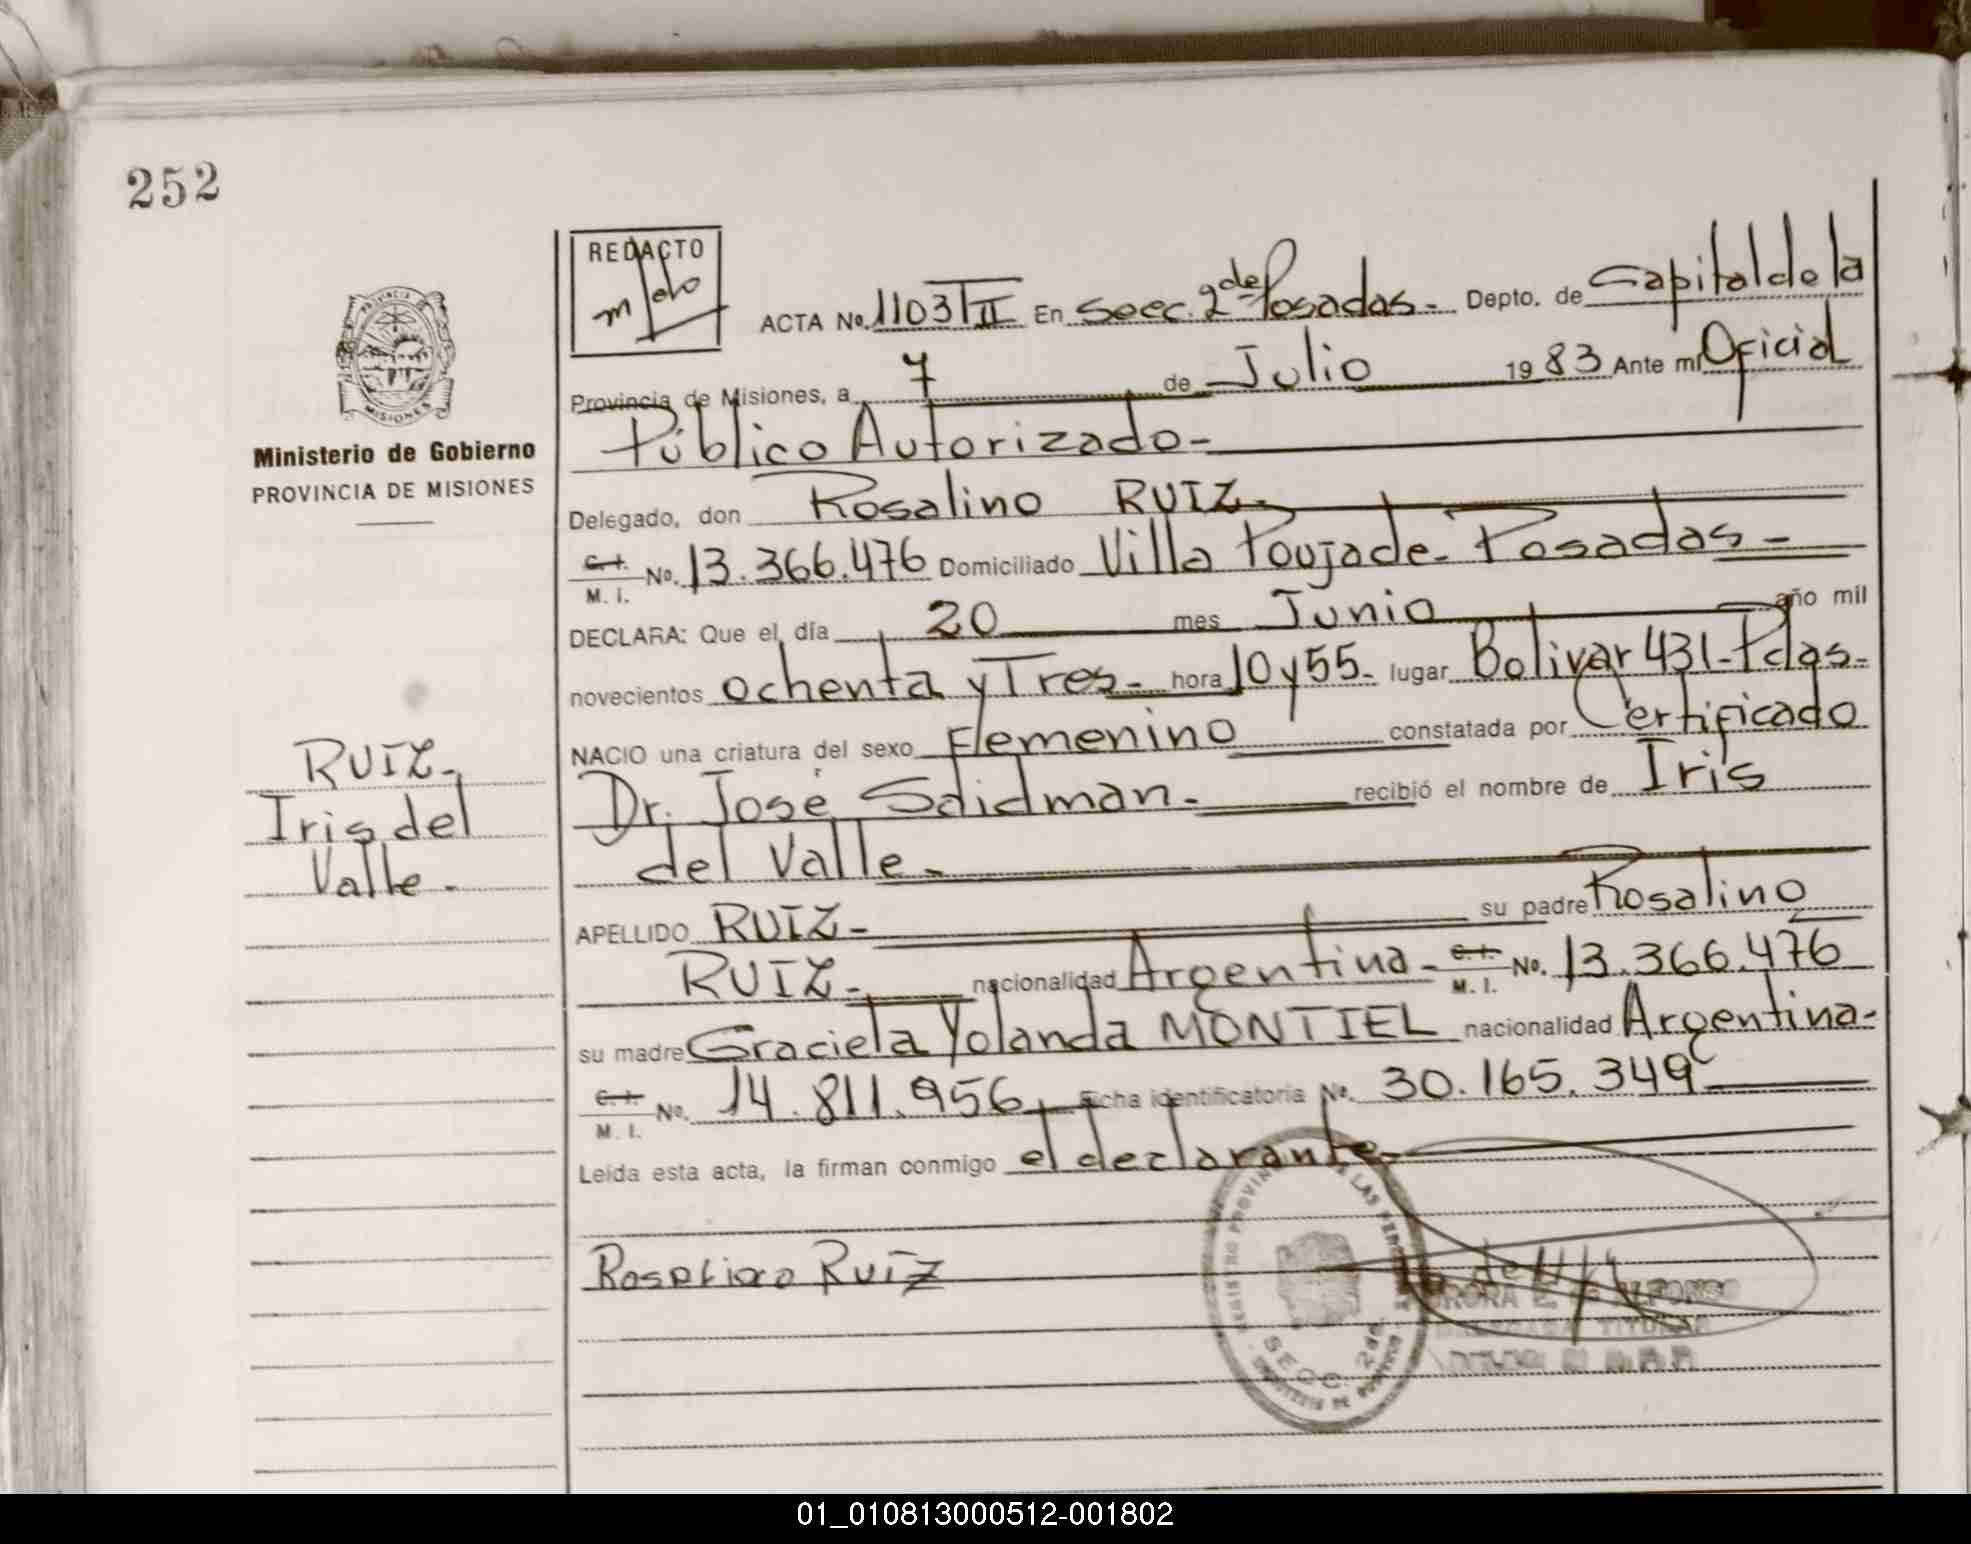 252
REDACTO
ACTA No. 1103 T II En Secc. 2da de Posadas - Depto. de Capital de la
Provincia de Misiones, a 7 de Julio 1983 Ante mi Oficial
Público Autorizado -
PROVINCIA
MISIONES
Ministerio de Gobierno
PROVINCIA DE MISIONES
Delegado, don Rosalino RUIZ -
C.I.
M. I. No. 13.366.476 Domiciliado Villa Poujade - Posadas -
DECLARA: Que el día 20 mes Junio año mil
novecientos ochenta y Tres - hora 10 y 55 - lugar Bolivar 431 - Pdas -
NACIO una criatura del sexo Femenino constatada por Certificado
Dr. José Saidman - recibió el nombre de Iris
del Valle -
RUIZ -
Iris del
Valle -
APELLIDO RUIZ - su padre Rosalino
RUIZ - nacionalidad Argentina - C.I.
M. I. No. 13.366.476
su madre Graciela Yolanda MONTIEL nacionalidad Argentina -
C.I.
M. I. No. 14.811.956 Ficha identificatoria No. 30.165.349
Leida esta acta, la firman conmigo el declarante -
Rosalino RUIZ
REGISTRO PROVIN LAS PER
SECC. 2da.
E. de ALFONSO
TITULAR
01_010813000512-001802